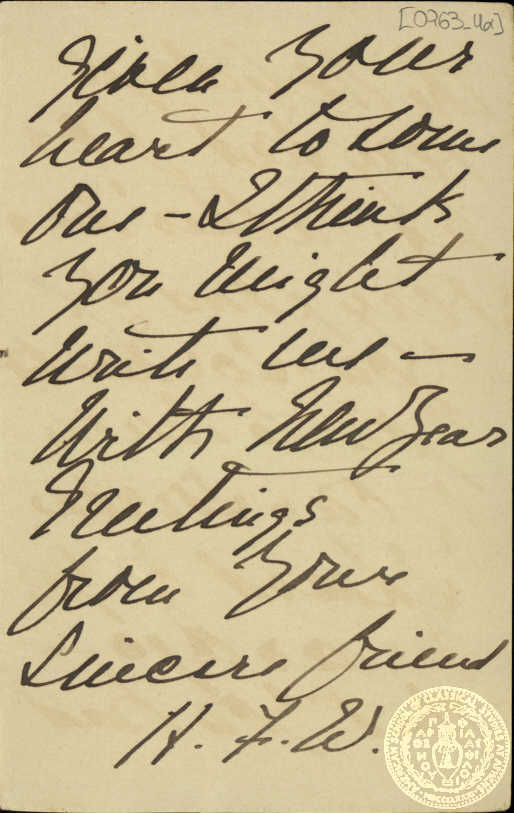 [0963_4a]
given your
heart to some
one – I think
you might
write me –
With New Year
Greetings
from your
sincere friend
H. F. W.